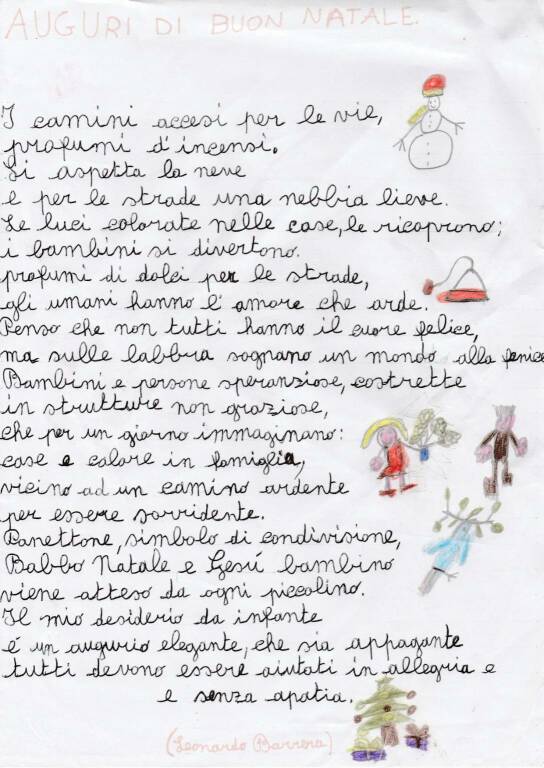 AUGURI DI BUON NATALE.
I camini accesi per le vie,
profumi d'incensi.
Si aspetta la neve
e per le strade una nebbia lieve.
Le luci colorate nelle case, le ricoprono;
i bambini si divertono.
profumi di dolci per le strade,
gli umani hanno l'amore che arde.
Penso che non tutti hanno il cuore felice,
ma sulle labbra sognano un mondo alla fenice
Bambini e persone speranziose, costrette
in strutture non graziose,
che per un giorno immaginano:
case e calore in famiglia,
vicino ad un camino ardente
per essere sorridente.
Panettone, simbolo di condivisione,
Babbo Natale e Gesú bambino
viene atteso da ogni piccolino.
Il mio desiderio da infante
é un augurio elegante, che sia appagante
tutti devono essere aiutati in allegria e
e senza apatia.
(Leonardo Barrera)